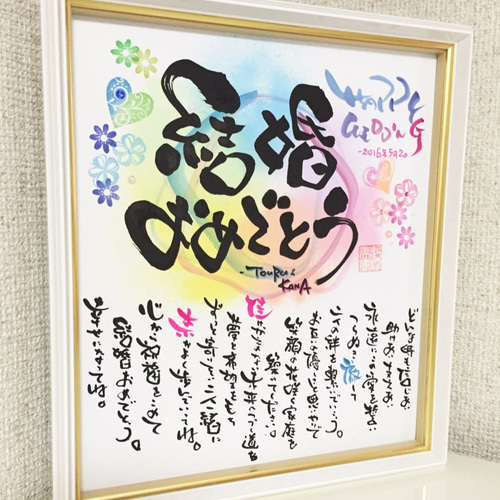 結婚
おめでとう
HAPPY
WEDDING
-2016年5月20
-TOURU &
KANA
どんな時も信じあい
助けあいながら
永遠にこの愛を誓い
つらぬき徹して
二人の絆を繋いでいこう。
お互いの優しさと思いやりで
笑顔の花咲く家庭を
築いてください。
佳き 未来につづく道を
夢と希望をもち
ずっと寄りそって一緒に
歩んでいってね。
心から祝福をこめて
結婚おめでとう。
幸せになってね。